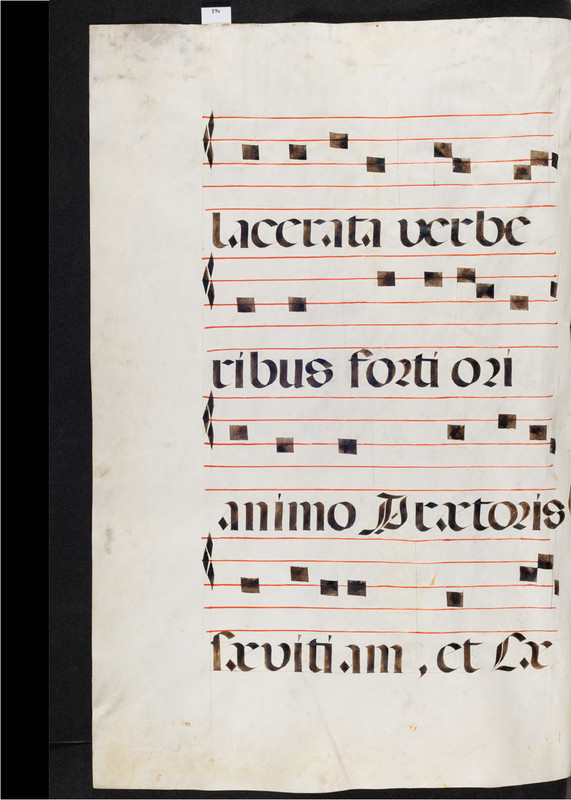 37v
lacerata verbe
ribus forti ori
animo Prætoris
sævitiam, et Cæ